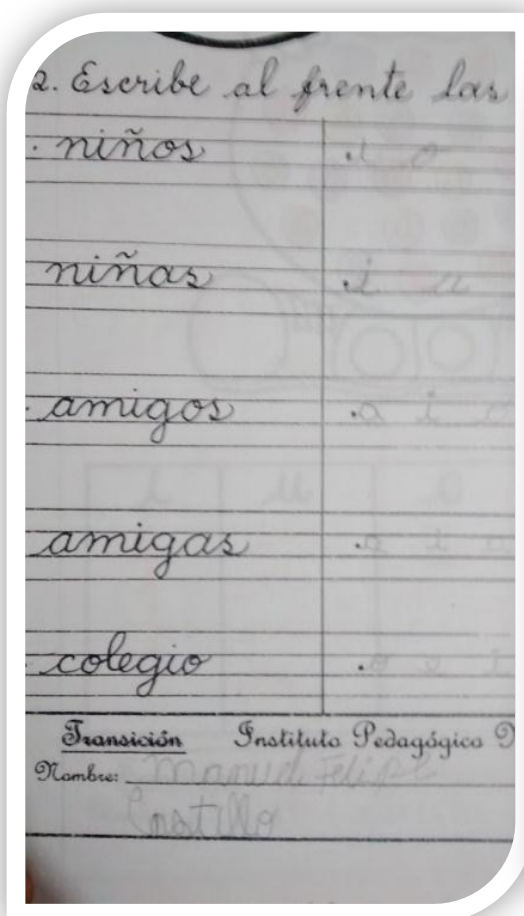 2. Escribe al frente las
. niños .i o
niñas .i a
. amigos .a i o
amigas .a i a
. colegio .o e i
Transición Instituto Pedagógico
Nombre: Manuel Felipe
Castillo